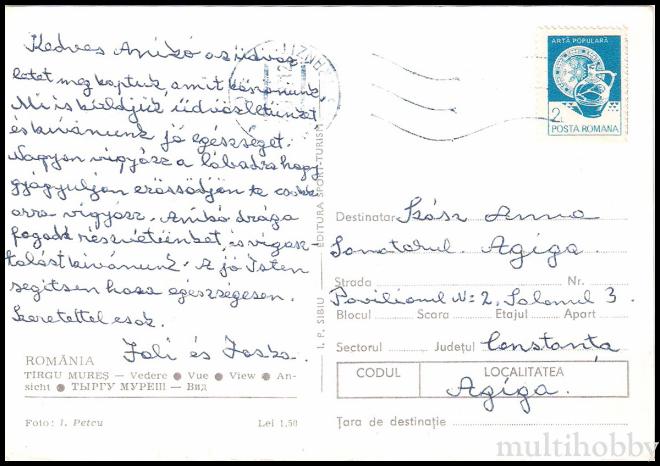 Kedves Anikó az üdvöz
letet megkaptuk, amit köszönünk.
Mi is küldjük üdvözletünket
és kivánunk jó egészséget.
Nagyon vigyázz a lábadra hogy
gyógyuljon erössödjön te csak
arra vigyázz. Anikó drága
fogadd részvétünket, és vigasz
talást kivánunk. A jó Isten
segitsen haza egészségesen.
Szeretettel csók.
Joli és Joska.
ROMÂNIA
TÎRGU MUREȘ — Vedere ● Vue ● View ● An-
sicht ● ТЫРГУ МУРЕШ — Вид
Foto: I. Petcu Lei 1,50
I. P. SIBIU EDITURA SPORT-TURISM
ARTĂ POPULARĂ
2L
POSTA ROMANA
Destinatar Szász Anna
Sanatorul Agiga
Strada Nr.
Pavilionul N: 2, Salonul 3.
Blocul Scara Etajul Apart
Sectorul Județul Constanța
CODUL LOCALITATEA
Agiga.
Țara de destinație
multihobby